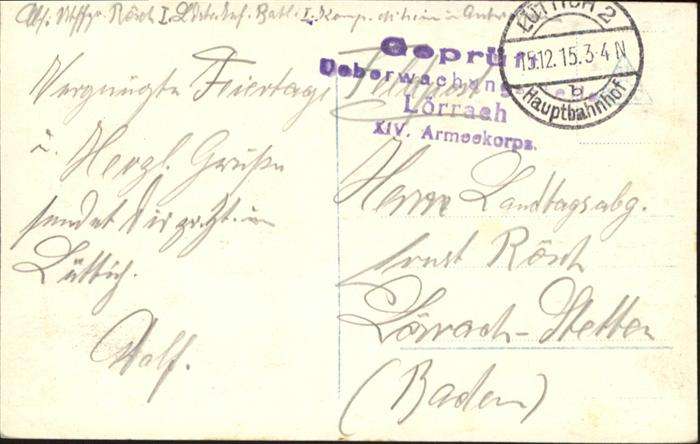 Abs: Utffz. Rösch I. Landst. Inf. Batl. I. Komp.
Vergnügte Feiertage
u. Herzl. Grüße
sendet Dir z. Zt. in
Lüttich.
Adolf.
Feldpost
Geprüft
Ueberwachungsstelle
Lörrach
XIV. Armeekorps.
LÜTTICH 2
15.12.15.3-4 N
b
Hauptbahnhof
Herrn Landtagsabg.
Ernst Rösch
Lörrach-Stetten
(Baden)